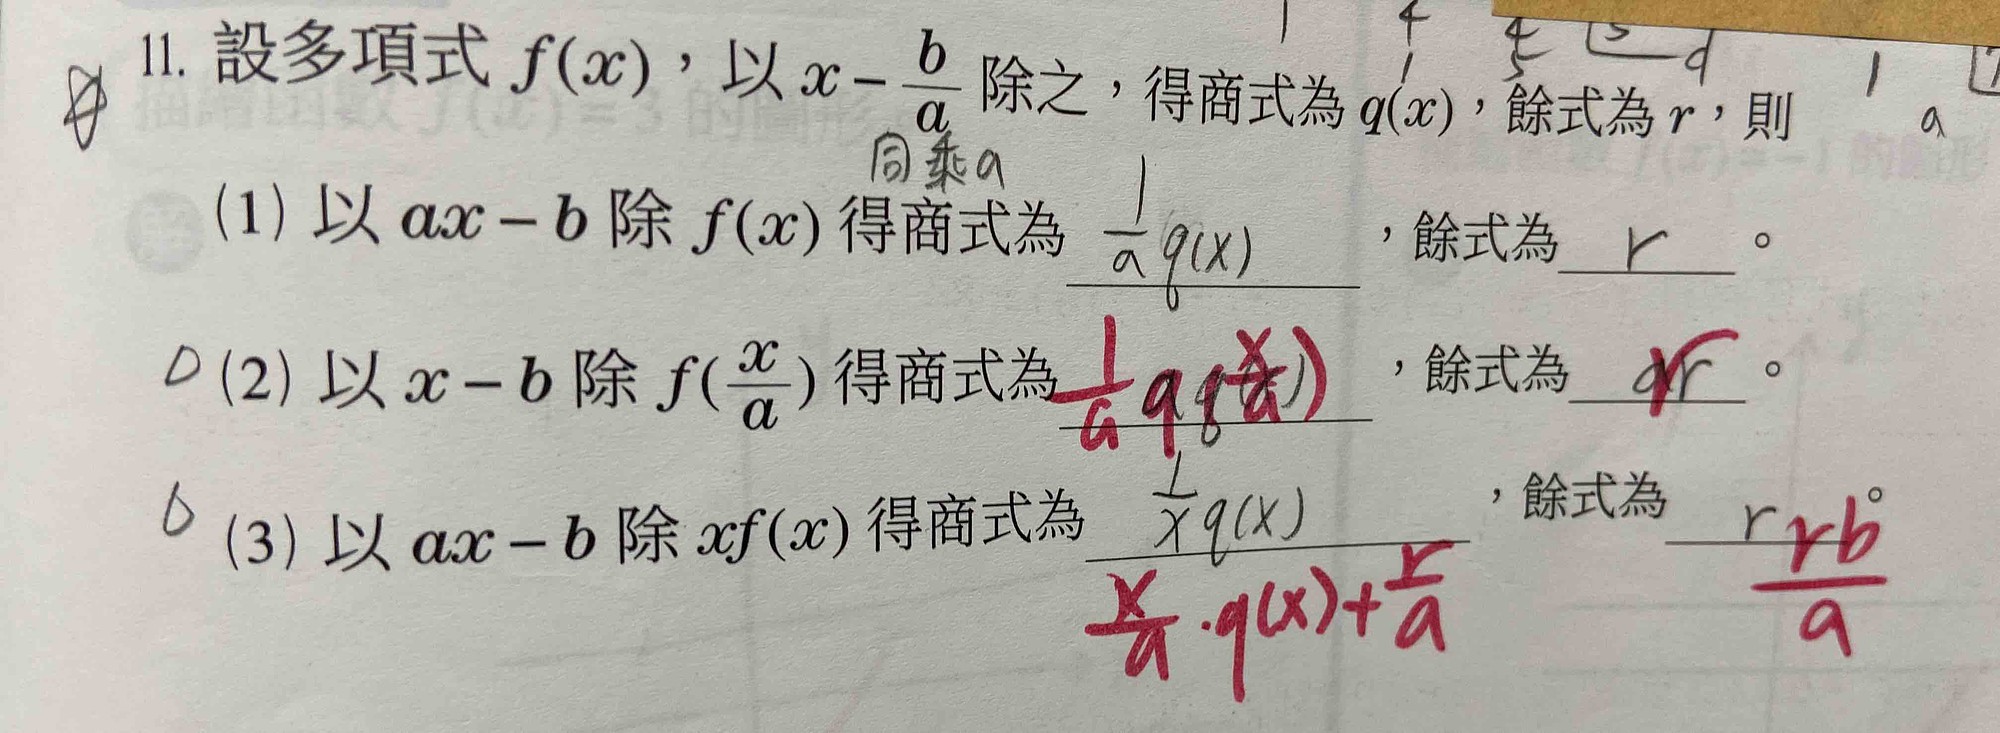 1 4 4 5 d 1
11. 設多項式 f(x)，以 x − b/a 除之，得商式為 q(x)，餘式為 r，則 a
同乘a
(1) 以 ax − b 除 f(x) 得商式為 1/a q(x)，餘式為 r。
(2) 以 x − b 除 f(x/a) 得商式為 1/a q(x/a)，餘式為 r。
(3) 以 ax − b 除 xf(x) 得商式為 1/x q(x)，餘式為 r。
x/a · q(x) + r/a rb/a